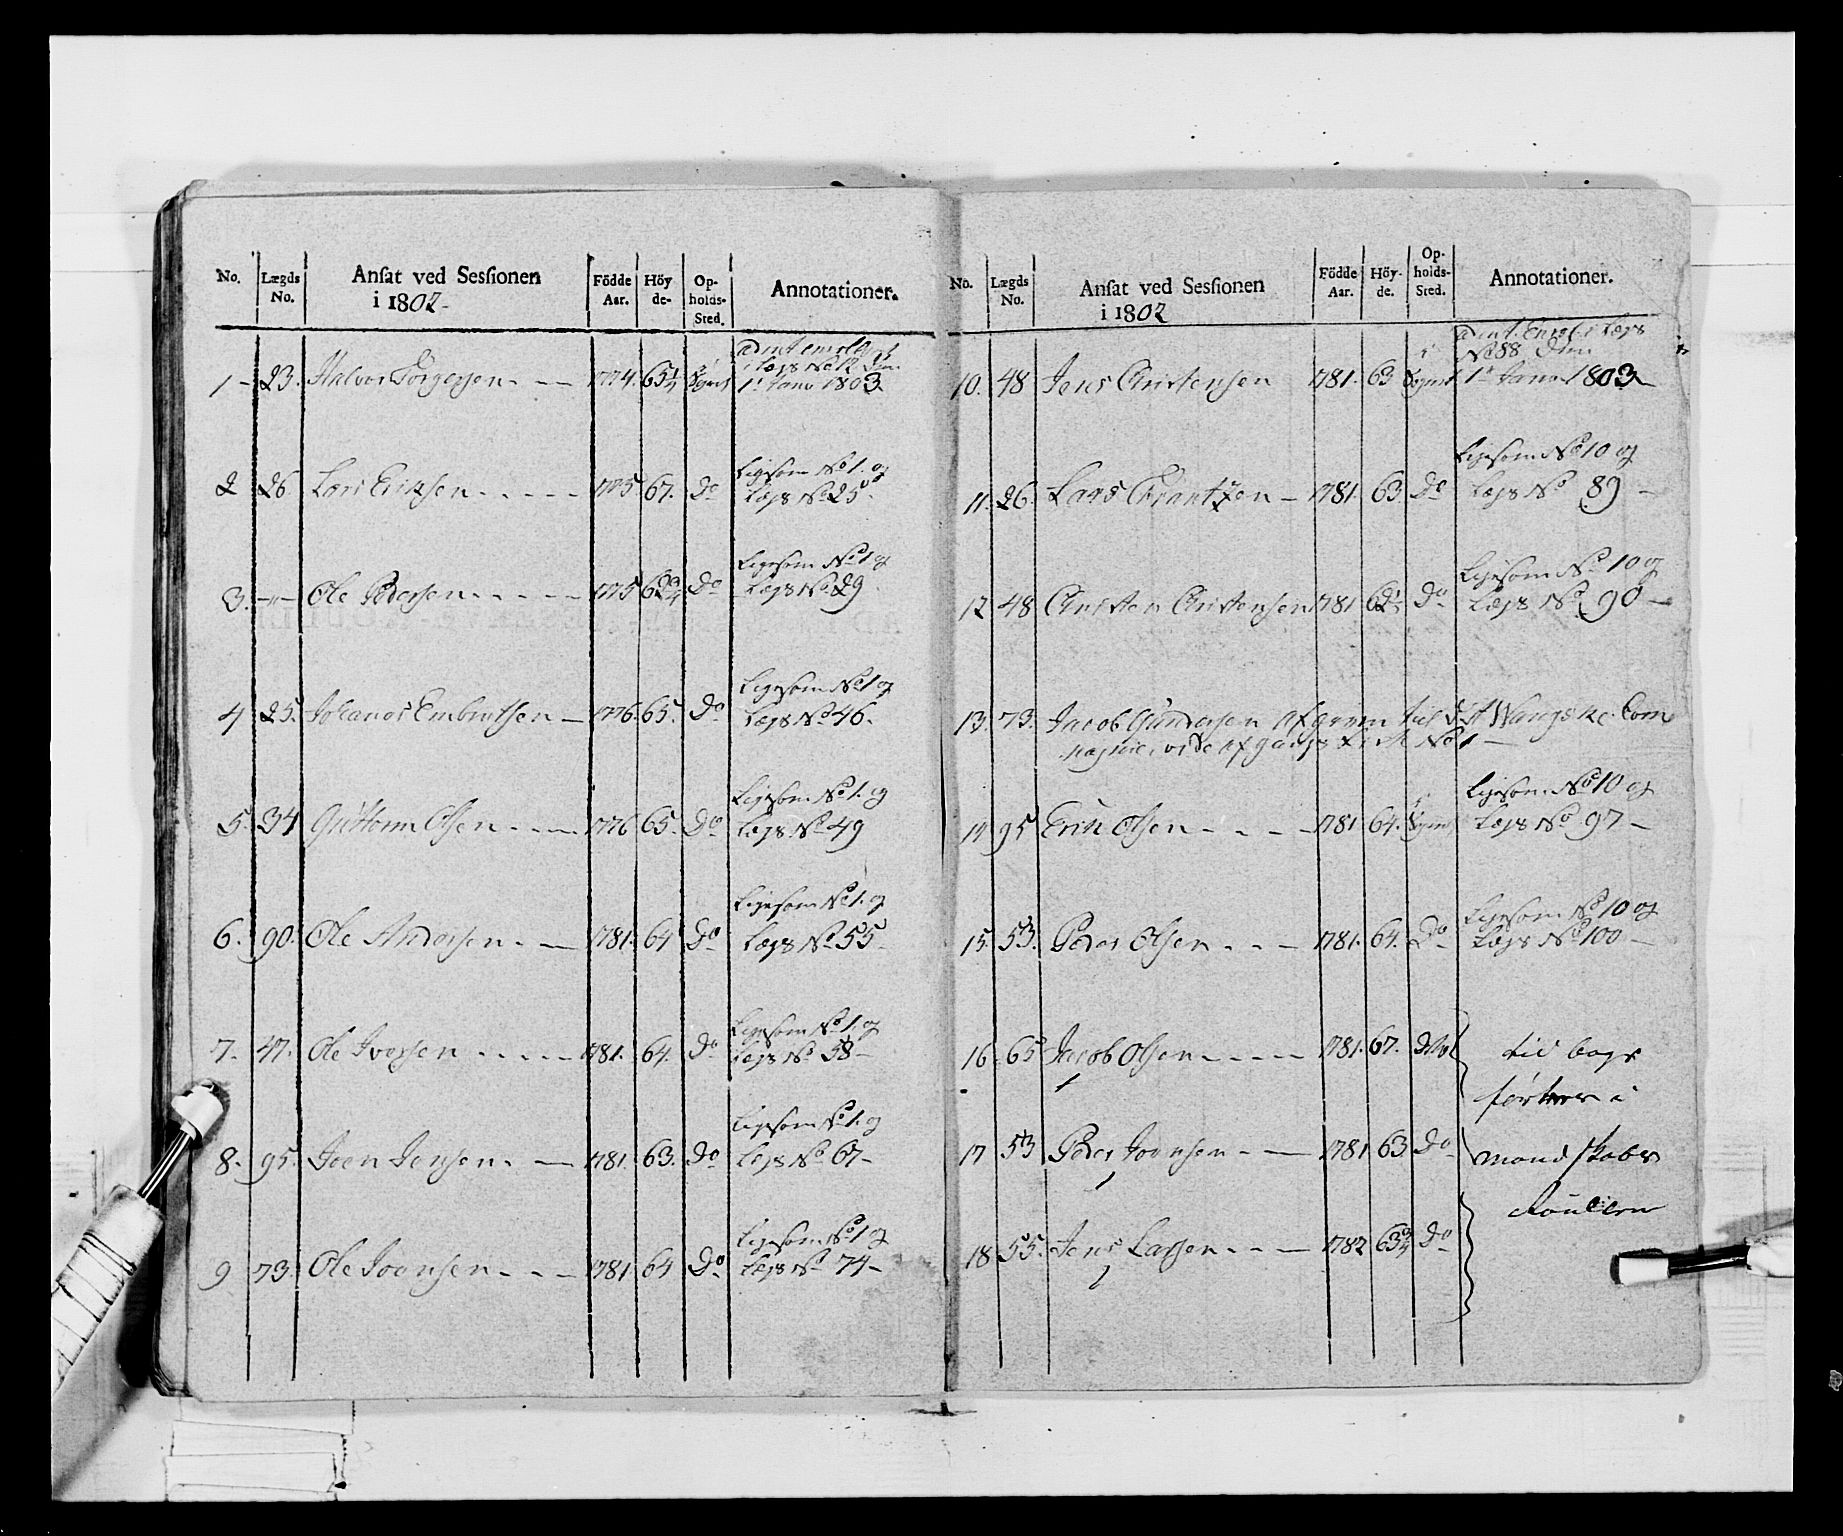 No. Lægds No. Ansat ved Sessionen i 1802 Födde Aar. Höyde- Opholds-Sted. Annotationer.
1 - 23. Halvor Törgersen - - - 1774. 65 1/4 i Sognet
Lægs No 12 den
1t Janv 1803
2 26 Lars Eriksen - - - - - 1775 67. Do Ligesom No 1. og
Lægs No 25.
3. -"- Ole Pedersen - - - - - 1775 62 3/4 Do Ligesom No 1 og
Lægs No 29
4 25. Johanes Embretsen - 1776. 65. Do Ligesom No 1 og
Lægs No 46.
5. 34 Guttorm Olsen - - - 1776 65. Do Ligesom No 1. og
Lægs No 49
6. 90. Ole Andersen - - 1781. 64 Do Ligesom No 1. og
Lægs No 55-
7. 47. Ole Iversen - - - - - 1781. 64. Do Ligesom No 1. og
Lægs No 58-
8. 95. Joen Jensen - - 1781. 63. Do Ligesom No 1. og
Lægs No 67-
9 73. Ole Joensen - - - 1781 64 Do Ligesom No 1 og
Lægs No 74-
No. Lægds No. Ansat ved Sessionen i 1802 Födde Aar. Höyde. Opholds-Sted. Annotationer.
10. 48 Jens Christensen 1781. 63 i Sognet
No 88 den
1t Janv 1803
11. 26. Lars Frantzen - 1781. 63 Do Ligesom No 10 og
Lægs No 89 -
12 48 Christen Christensen 1781 62 1/2 Do Ligesom No 10 og
Lægs No 90 -
13. 73. Jacob Gundersen afgaaen til det Wangske Com
pagnie, vide afgangs List No 1 -
14 95 Erik Olsen - - - - 1781 64. i Sognet Ligesom No 10 og
Lægs No 97 -
15. 53. Peder Olsen - - - 1781. 64. Do Ligesom No 10 og
Lægs No 100 -
16. 65 Jacob Olsen - - - - - 1781. 67. Do til bage
førtes i
17 53 Peder Joensen - - - 1781 63 Do mandskabs
Roullen
18 55. Jens Larsen - - - 1782 63 3/4 Do